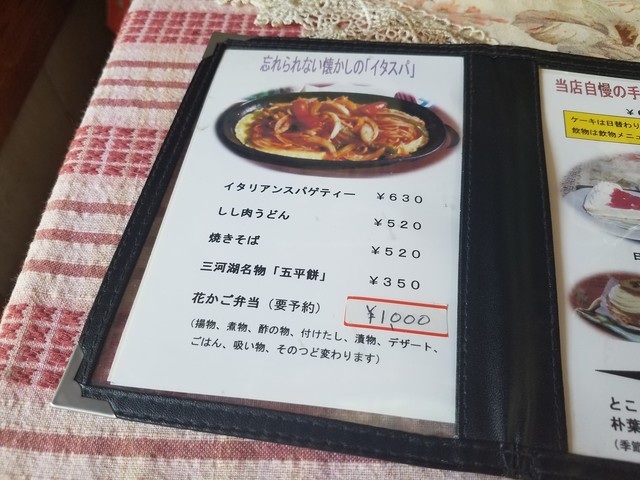 忘れられない懐かしの「イタスパ」
イタリアンスパゲティー ￥６３０
しし肉うどん ￥５２０
焼きそば ￥５２０
三河湖名物「五平餅」 ￥３５０
花かご弁当（要予約） ￥1,000
（揚物、煮物、酢の物、付けたし、漬物、デザート、
ごはん、吸い物、そのつど変わります）
当店自慢の手
ケーキは日替わり
飲物は飲物メニュ
とこ
朴葉
（季節